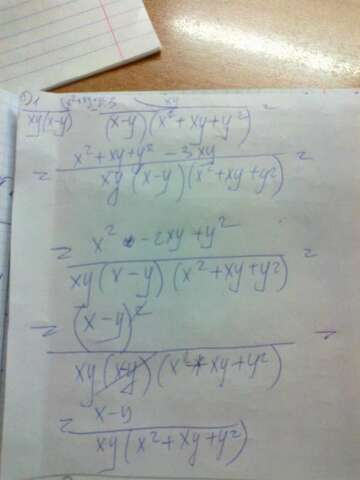 1) 1/(xy(x-y)) - 3/((x-y)(x²+xy+y²)) =
= (x²+xy+y² - 3xy)/(xy(x-y)(x²+xy+y²)) =
= (x² - 2xy + y²)/(xy(x-y)(x²+xy+y²)) =
= (x-y)²/(xy(x-y)(x²+xy+y²)) =
= (x-y)/(xy(x²+xy+y²))